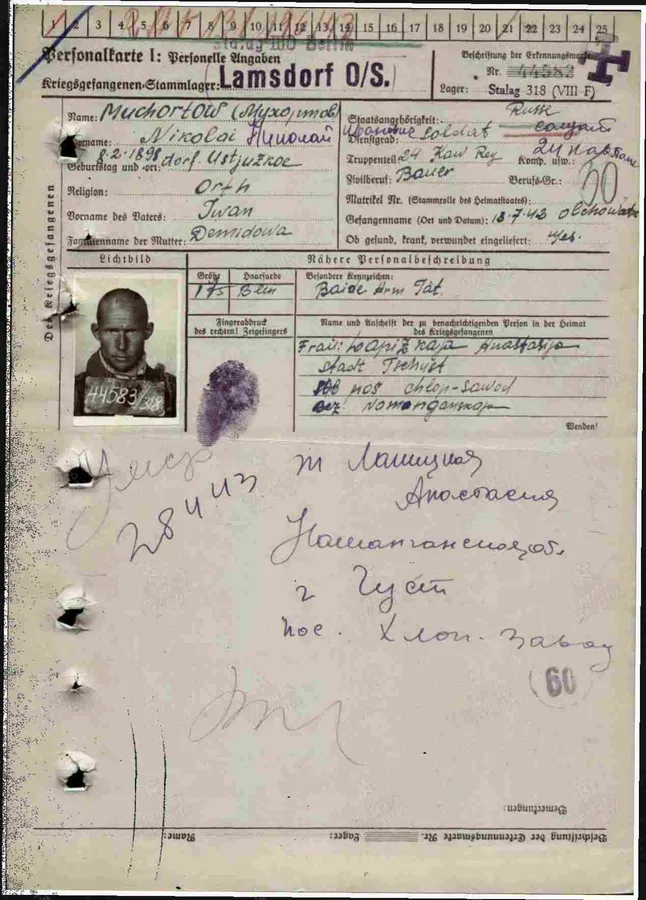 1 2 3 4 5 6 7 8 9 10 11 12 13 14 15 16 17 18 19 20 21 22 23 24 25
Personalkarte I: Personelle Angaben
Kriegsgefangenen-Stammlager: Lamsdorf O/S.
Beschriftung der Erkennungsmarke
Nr. 44583
Lager: Stalag 318 (VIII F)
Des Kriegsgefangenen
Name: Muchortow (Мухортов)
Vorname: Nikolai Николай
Geburtstag und -ort: 8.2.1898 dorf. Ustjużkoe
Religion: Orth
Vorname des Vaters: Iwan
Familienname der Mutter: Demidowa
Staatsangehörigkeit: Russe
Dienstgrad: Soldat солдат
Truppenteil: 24 Kaw Reg Komp. usw.:
Zivilberuf: Bauer Berufs-Gr.: 50
Matrikel Nr. (Stammrolle des Heimatstaates):
Gefangenname (Ort und Datum): 18.7.42 Olchowatka
Ob gesund, krank, verwundet eingeliefert: ges.
Lichtbild
Nähere Personalbeschreibung
Größe Haarfarbe
175 Blon
Besondere Kennzeichen:
Baide Arm Tät.
Fingerabdruck
des rechten! Zeigefingers
Name und Anschrift der zu benachrichtigenden Person in der Heimat
des Kriegsgefangenen
Frau: Anastasija
Stadt Tschust
pos chlop-sawod
Namanganskaja
44583/318
Wenden!
Умер
28 4 43
ж Лапицкая
Анастасия
Наманганская об.
г Чуст
пос. Хлоп-завод
60
Bemerkungen:
Beschriftung der Erkennungsmarke Nr. Lager: Name: